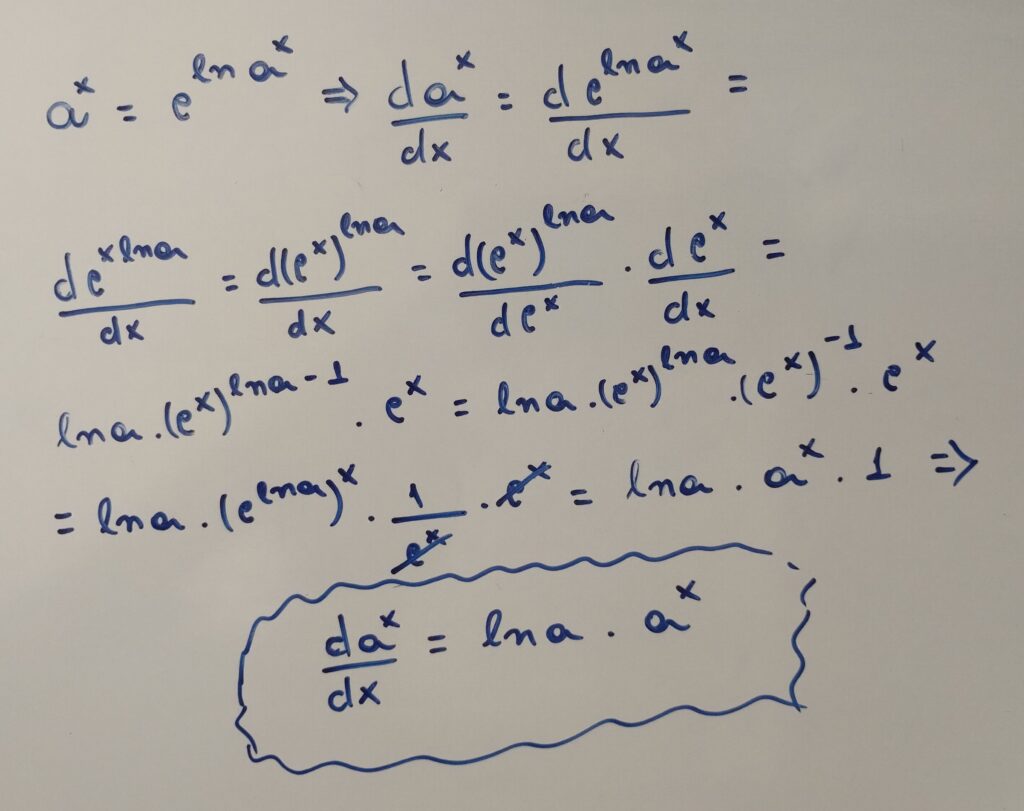 a^x = e^{ln a^x} ⇒ \frac{da^x}{dx} = \frac{de^{ln a^x}}{dx} =
\frac{de^{x ln a}}{dx} = \frac{d(e^x)^{ln a}}{dx} = \frac{d(e^x)^{ln a}}{de^x} · \frac{de^x}{dx} =
ln a · (e^x)^{ln a - 1} · e^x = ln a · (e^x)^{ln a} · (e^x)^{-1} · e^x
= ln a · (e^{ln a})^x · \frac{1}{e^x} · e^x = ln a · a^x · 1 ⇒
\frac{da^x}{dx} = ln a · a^x